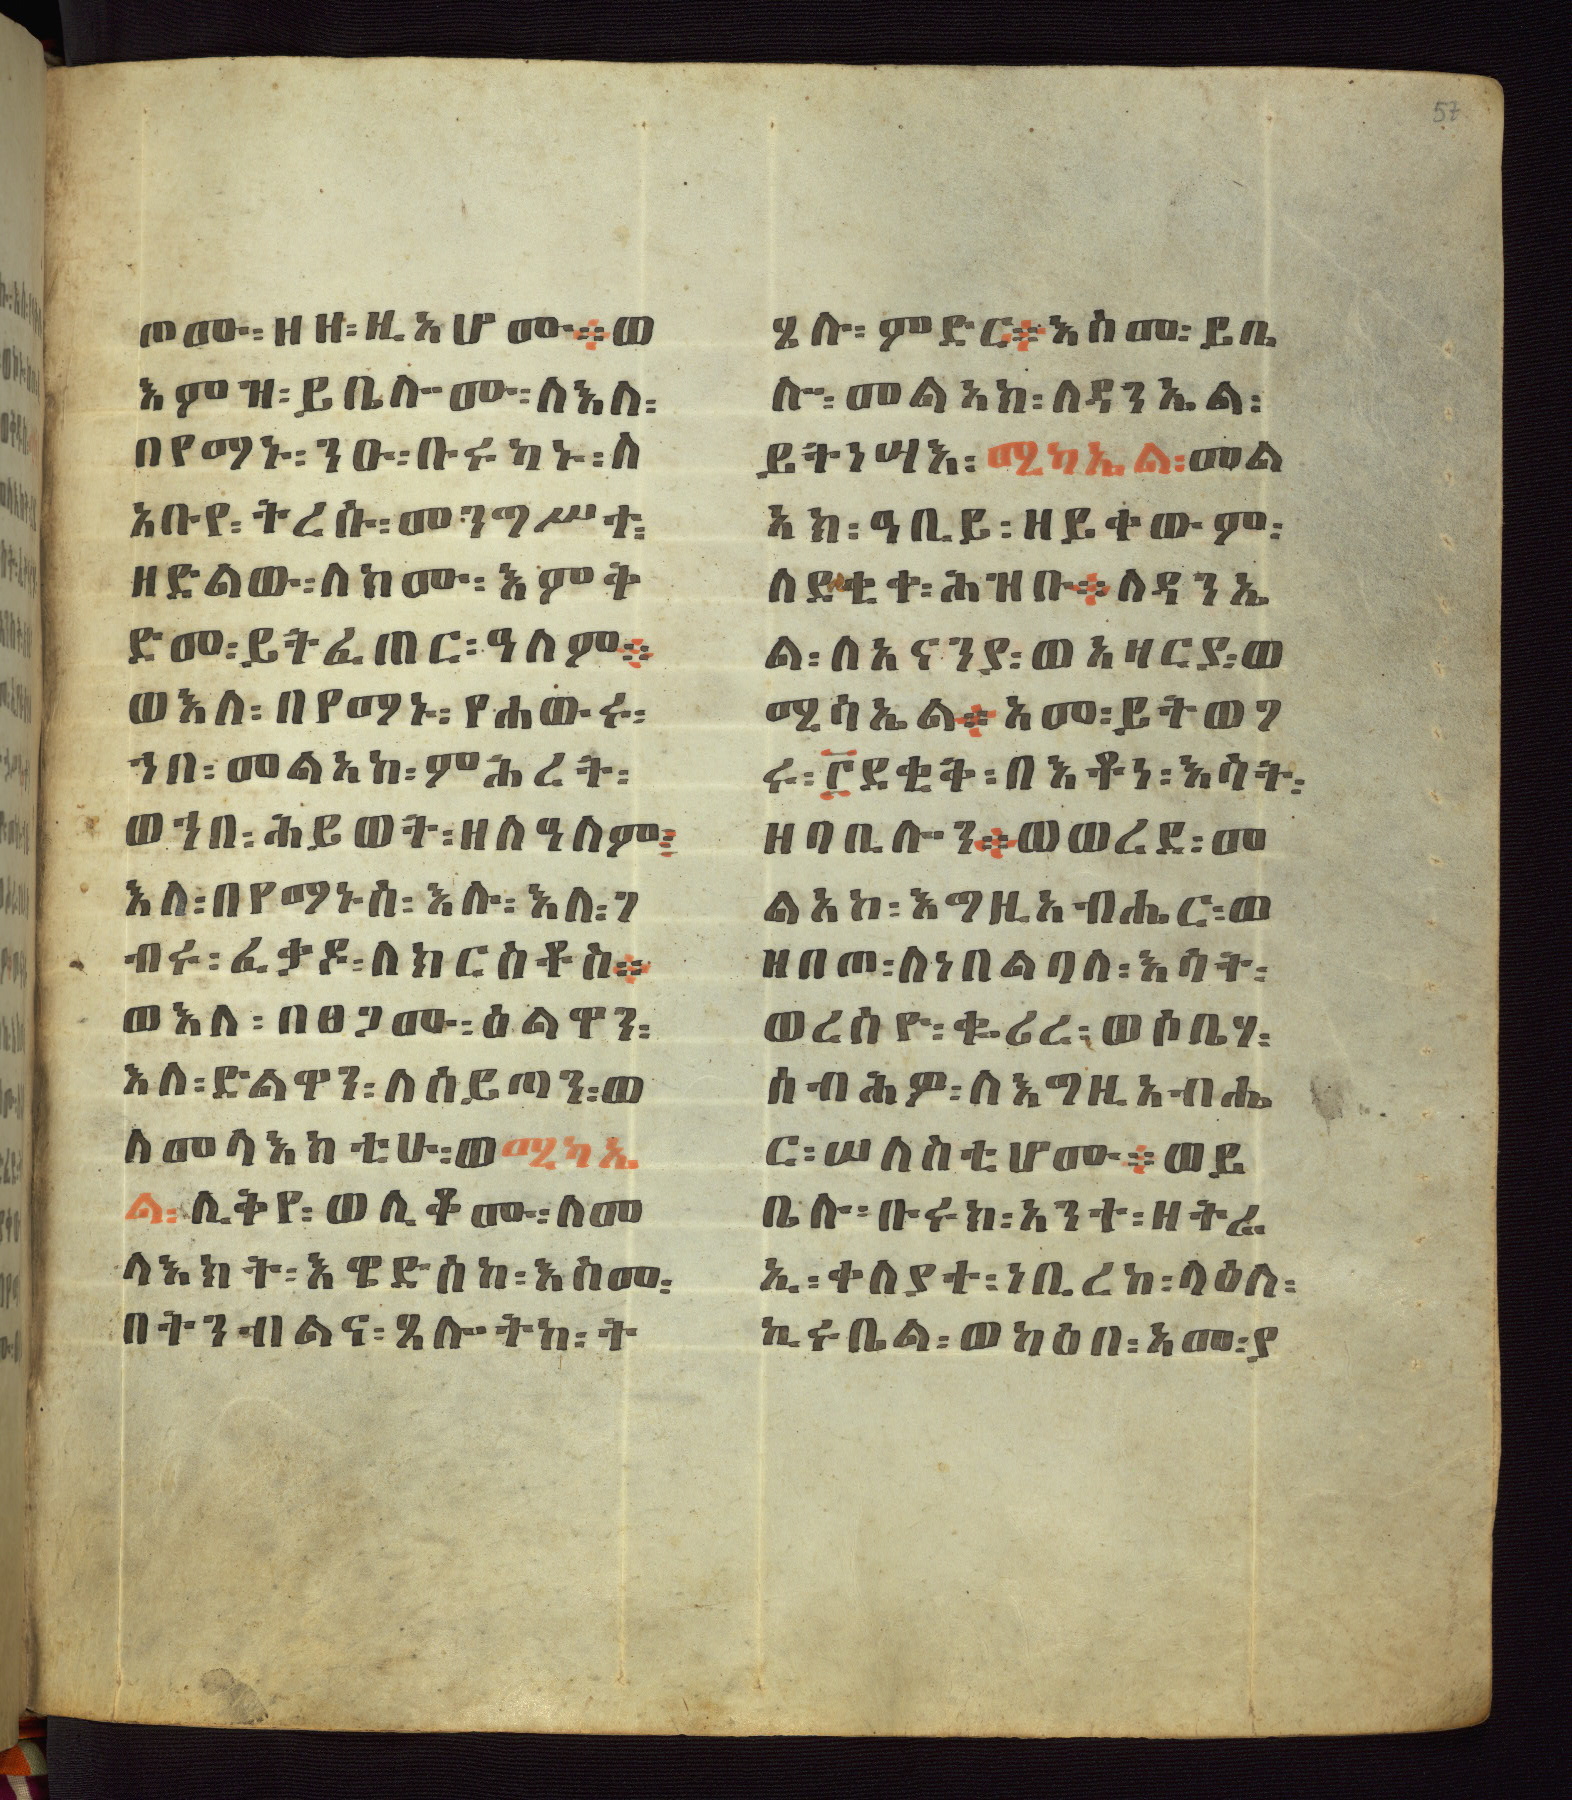 57
ጦሙ፡ዘዘ፡ዚአሆሙ፡፡ወ
እምዝ፡ይቤሎሙ፡ለእለ፡
በየማኑ፡ንዑ፡ቡሩካኑ፡ለ
አቡየ፡ትረሱ፡መንግሥተ፡
ዘድልው፡ለክሙ፡እምቅ
ድመ፡ይትፈጠር፡ዓለም፡፡
ወእለ፡በየማኑ፡የሐውሩ፡
ኀበ፡መልአከ፡ምሕረት፡
ወኀበ፡ሕይወት፡ዘለዓለም፡፡
እለ፡በየማኑስ፡እሉ፡እለ፡ገ
ብሩ፡ፈቃዶ፡ለክርስቶስ፡፡
ወእለ፡በፀጋሙ፡ዕልዋን፡
እለ፡ድልዋን፡ለሰይጣን፡ወ
ለመላእክቲሁ፡ወሚካኤ
ል፡ሊቅየ፡ወሊቆሙ፡ለመ
ላእክት፡እዌድሰከ፡እስመ፡
በትንብልና፡ጼሎትከ፡ት
ጼሉ፡ምድር፡፡እስመ፡ይቤ
ሎ፡መልአክ፡ለዳንኤል፡
ይትነሣእ፡ሚካኤል፡መል
አክ፡ዓቢይ፡ዘይቀውም፡
ለደቂቀ፡ሕዝቡ፡፡ለዳንኤ
ል፡ለአናንያ፡ወአዛርያ፡ወ
ሚሳኤል፡፡አመ፡ይትወገ
ሩ፡፫ደቂቅ፡በእቶነ፡እሳት፡
ዘባቢሎን፡፡ወወረደ፡መ
ልአከ፡እግዚአብሔር፡ወ
ዘበጦ፡ለነበልባለ፡እሳት፡
ወረሰዮ፡ቈሪረ፡ወሶቤሃ፡
ሰብሕዎ፡ለእግዚአብሔ
ር፡ሠለስቲሆሙ፡፡ወይ
ቤሉ፡ቡሩክ፡አንተ፡ዘትሬ
ኢ፡ቀለያተ፡ነቢረከ፡ላዕለ፡
ኪሩቤል፡ወካዕበ፡አመ፡ያ